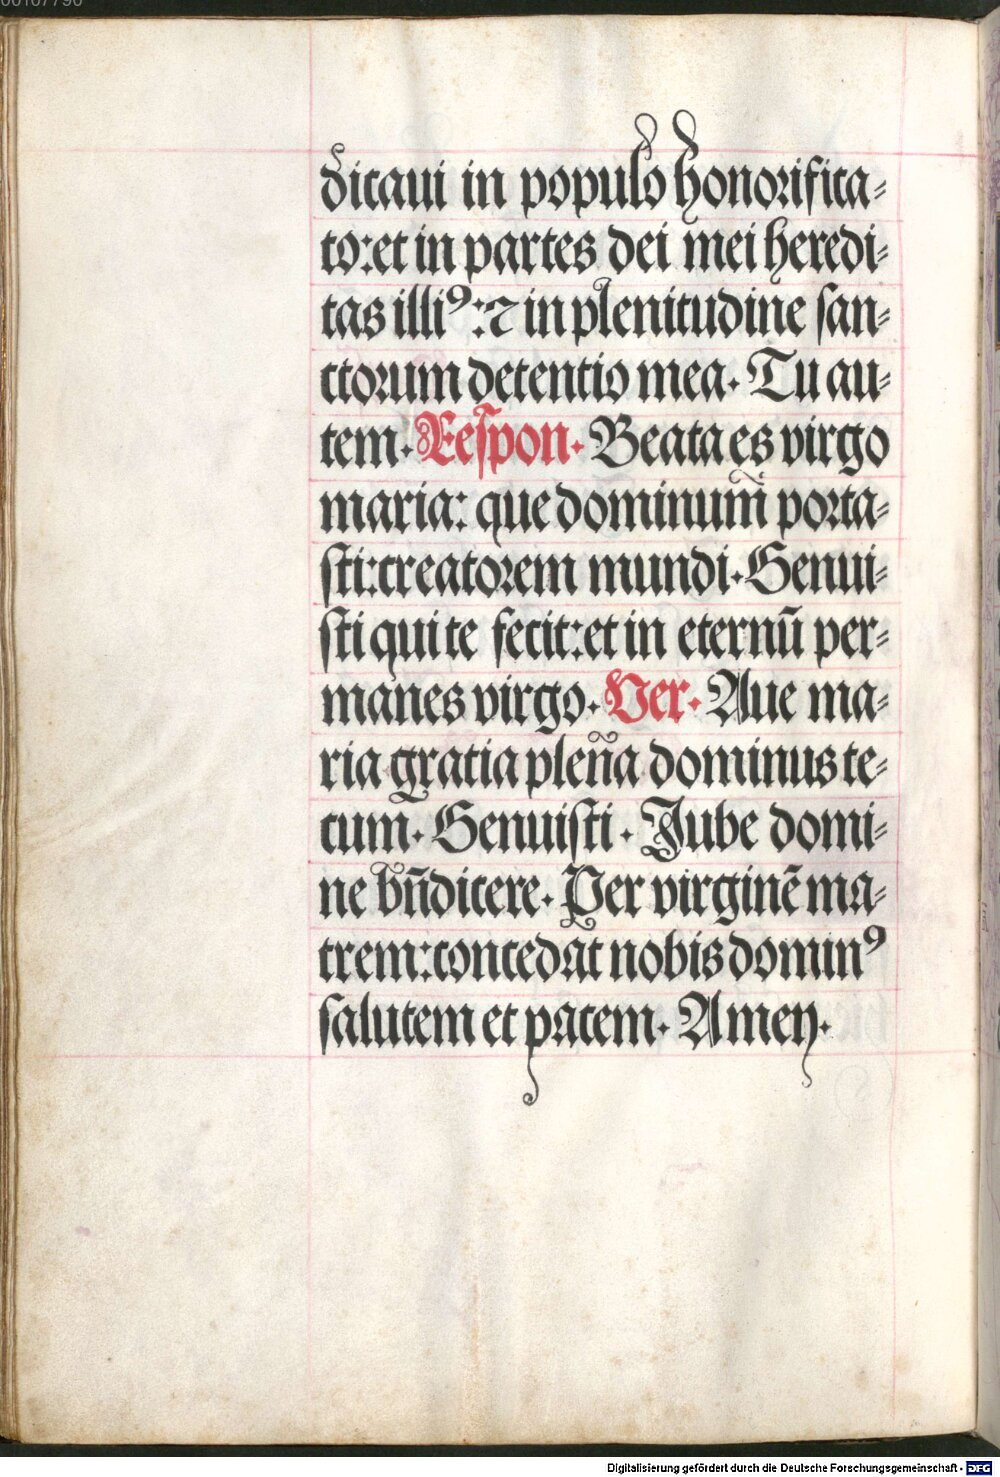 00107790
dicaui in populo honorifica-
to: et in partes dei mei heredi-
tas illi⁹: ⁊ in plenitudine san-
ctorum detentio mea. Tu au-
tem. Respon. Beata es virgo
maria: que dominum̄ porta-
sti: creatorem mundi. Genui-
sti qui te fecit: et in eternū per-
manes virgo. Ver. Aue ma-
ria gratia plen̄a dominus te-
cum. Genuisti. Jube domi-
ne bn̄dicere. Per virginē ma-
trem: concedat nobis domin⁹
salutem et pacem. Amen.
Digitalisierung gefördert durch die Deutsche Forschungsgemeinschaft - DFG